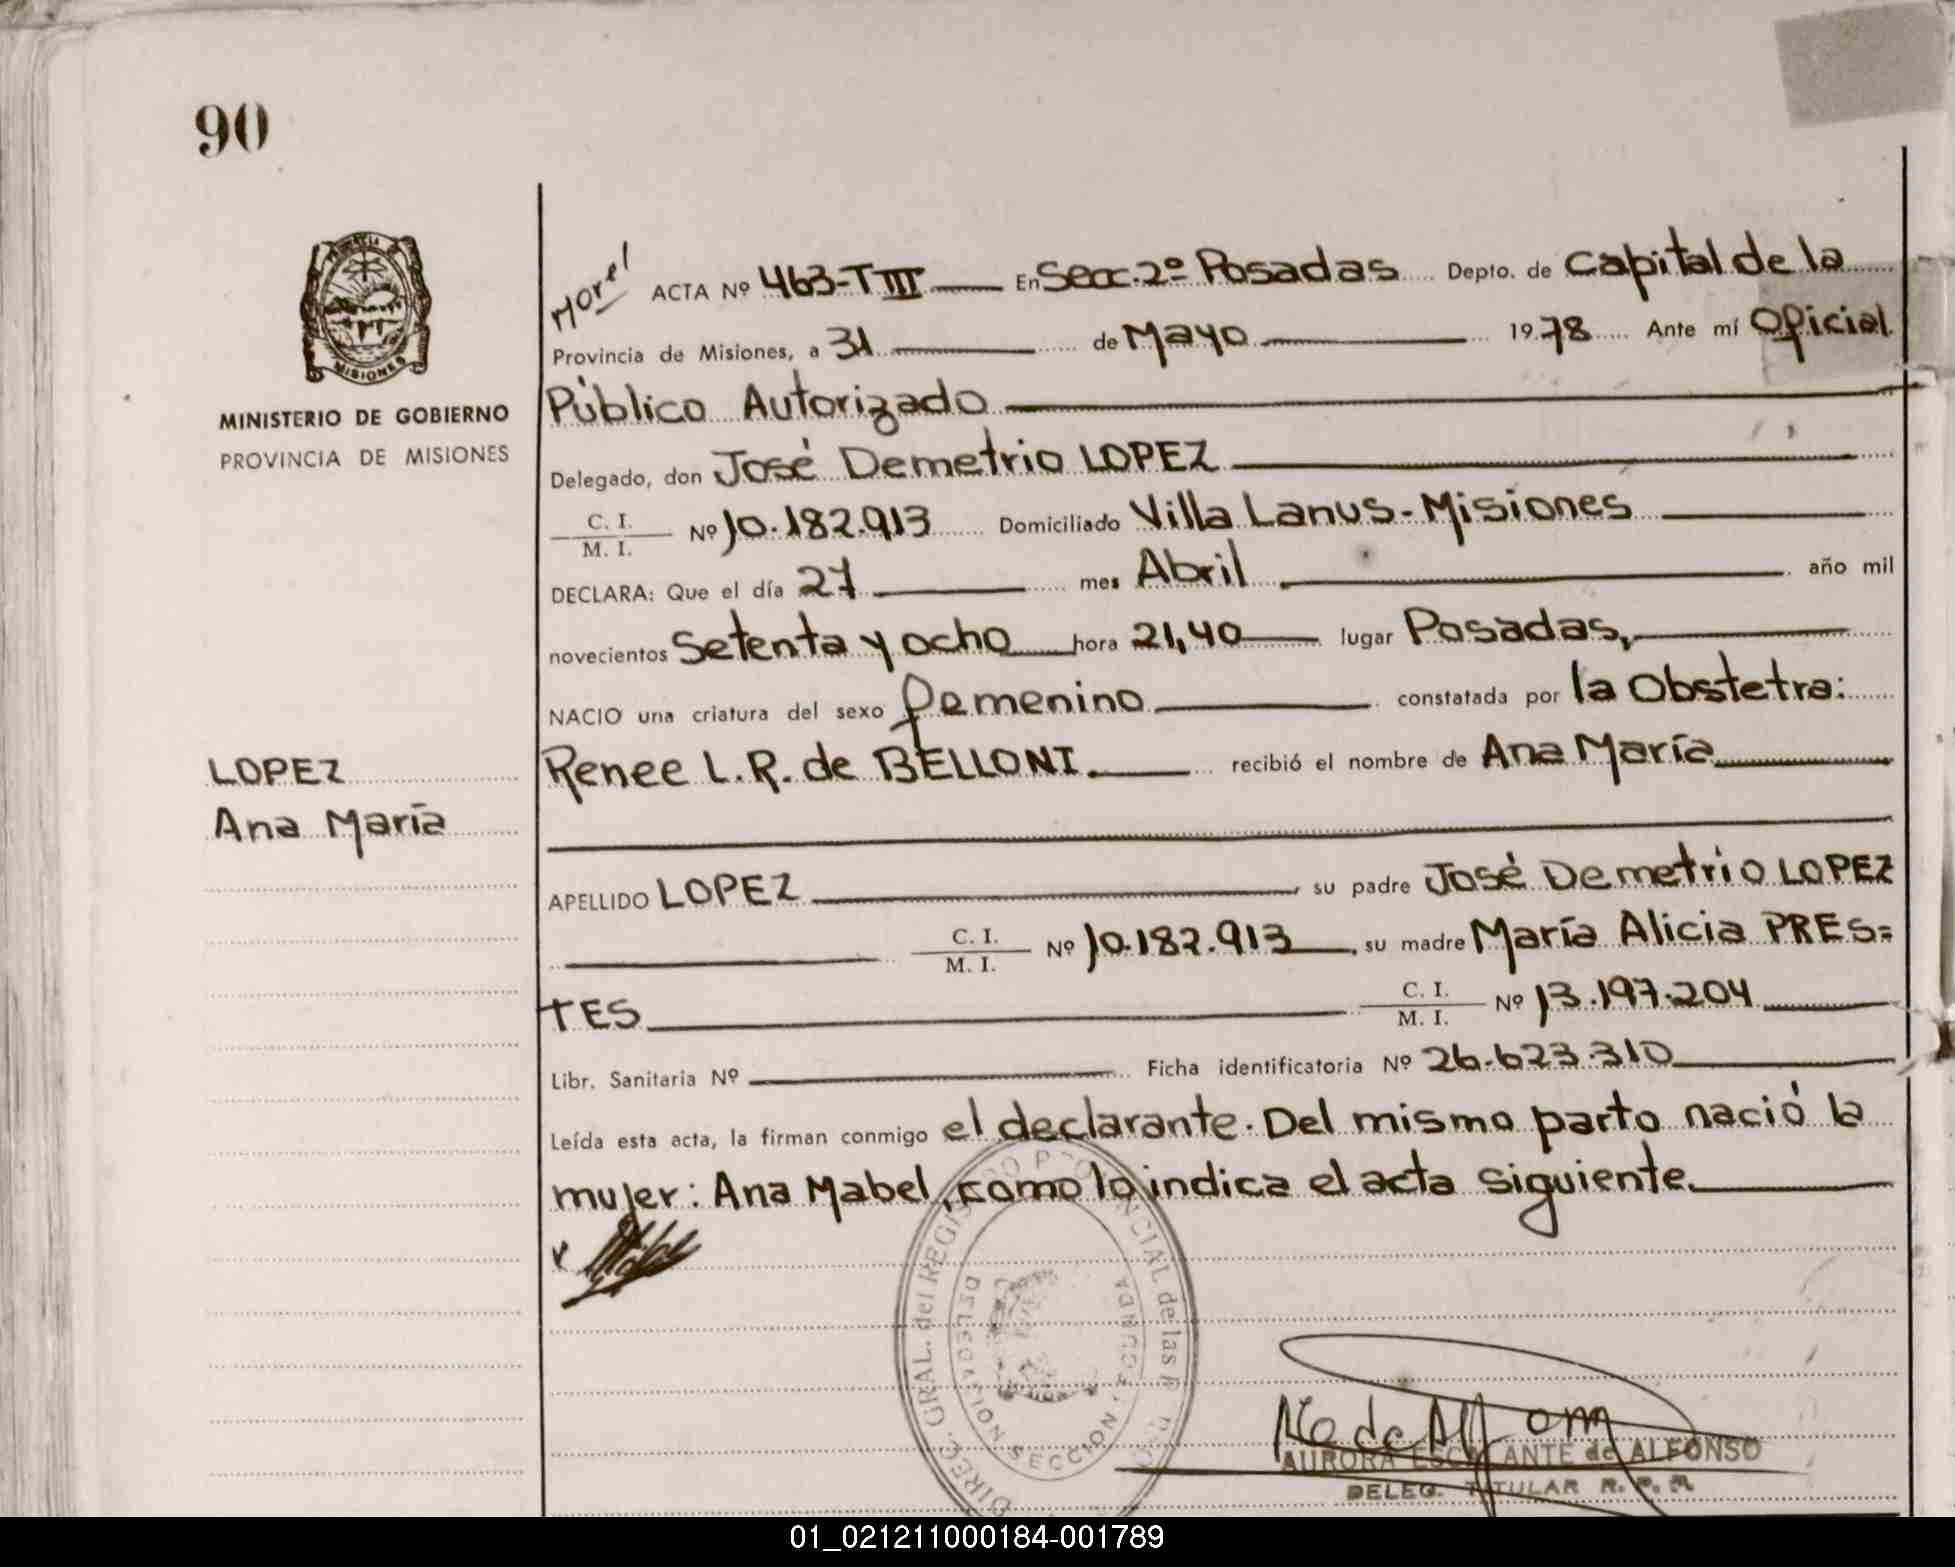 90
MISIONES
MINISTERIO DE GOBIERNO
PROVINCIA DE MISIONES
LOPEZ
Ana María
Morel
ACTA Nº 463-T III En Secc. 2º Posadas Depto. de Capital de la
Provincia de Misiones, a 31 de Mayo 1978 Ante mí Oficial
Público Autorizado
Delegado, don José Demetrio LOPEZ
C. I.
M. I. Nº 10.182.913 Domiciliado Villa Lanus - Misiones
DECLARA: Que el día 27 mes Abril año mil
novecientos Setenta y ocho hora 21,40 lugar Posadas,
NACIO una criatura del sexo femenino constatada por la Obstetra:
Renee L.R. de BELLONI. recibió el nombre de Ana María
APELLIDO LOPEZ, su padre José Demetrio LOPEZ
C. I.
M. I. Nº 10.182.913, su madre María Alicia PRES=
TES C. I.
M. I. Nº 13.197.204
Libr. Sanitaria Nº Ficha identificatoria Nº 26.623.310
Leída esta acta, la firman conmigo el declarante. Del mismo parto nació la
mujer: Ana Mabel, como lo indica el acta siguiente.
DIREC. GRAL. del REGISTRO PROVINCIAL de las P
DELEGACION SECCION SEGUNDA
AURORA ESCALANTE de ALFONSO
DELEG. TITULAR R. P. P.
01_021211000184-001789